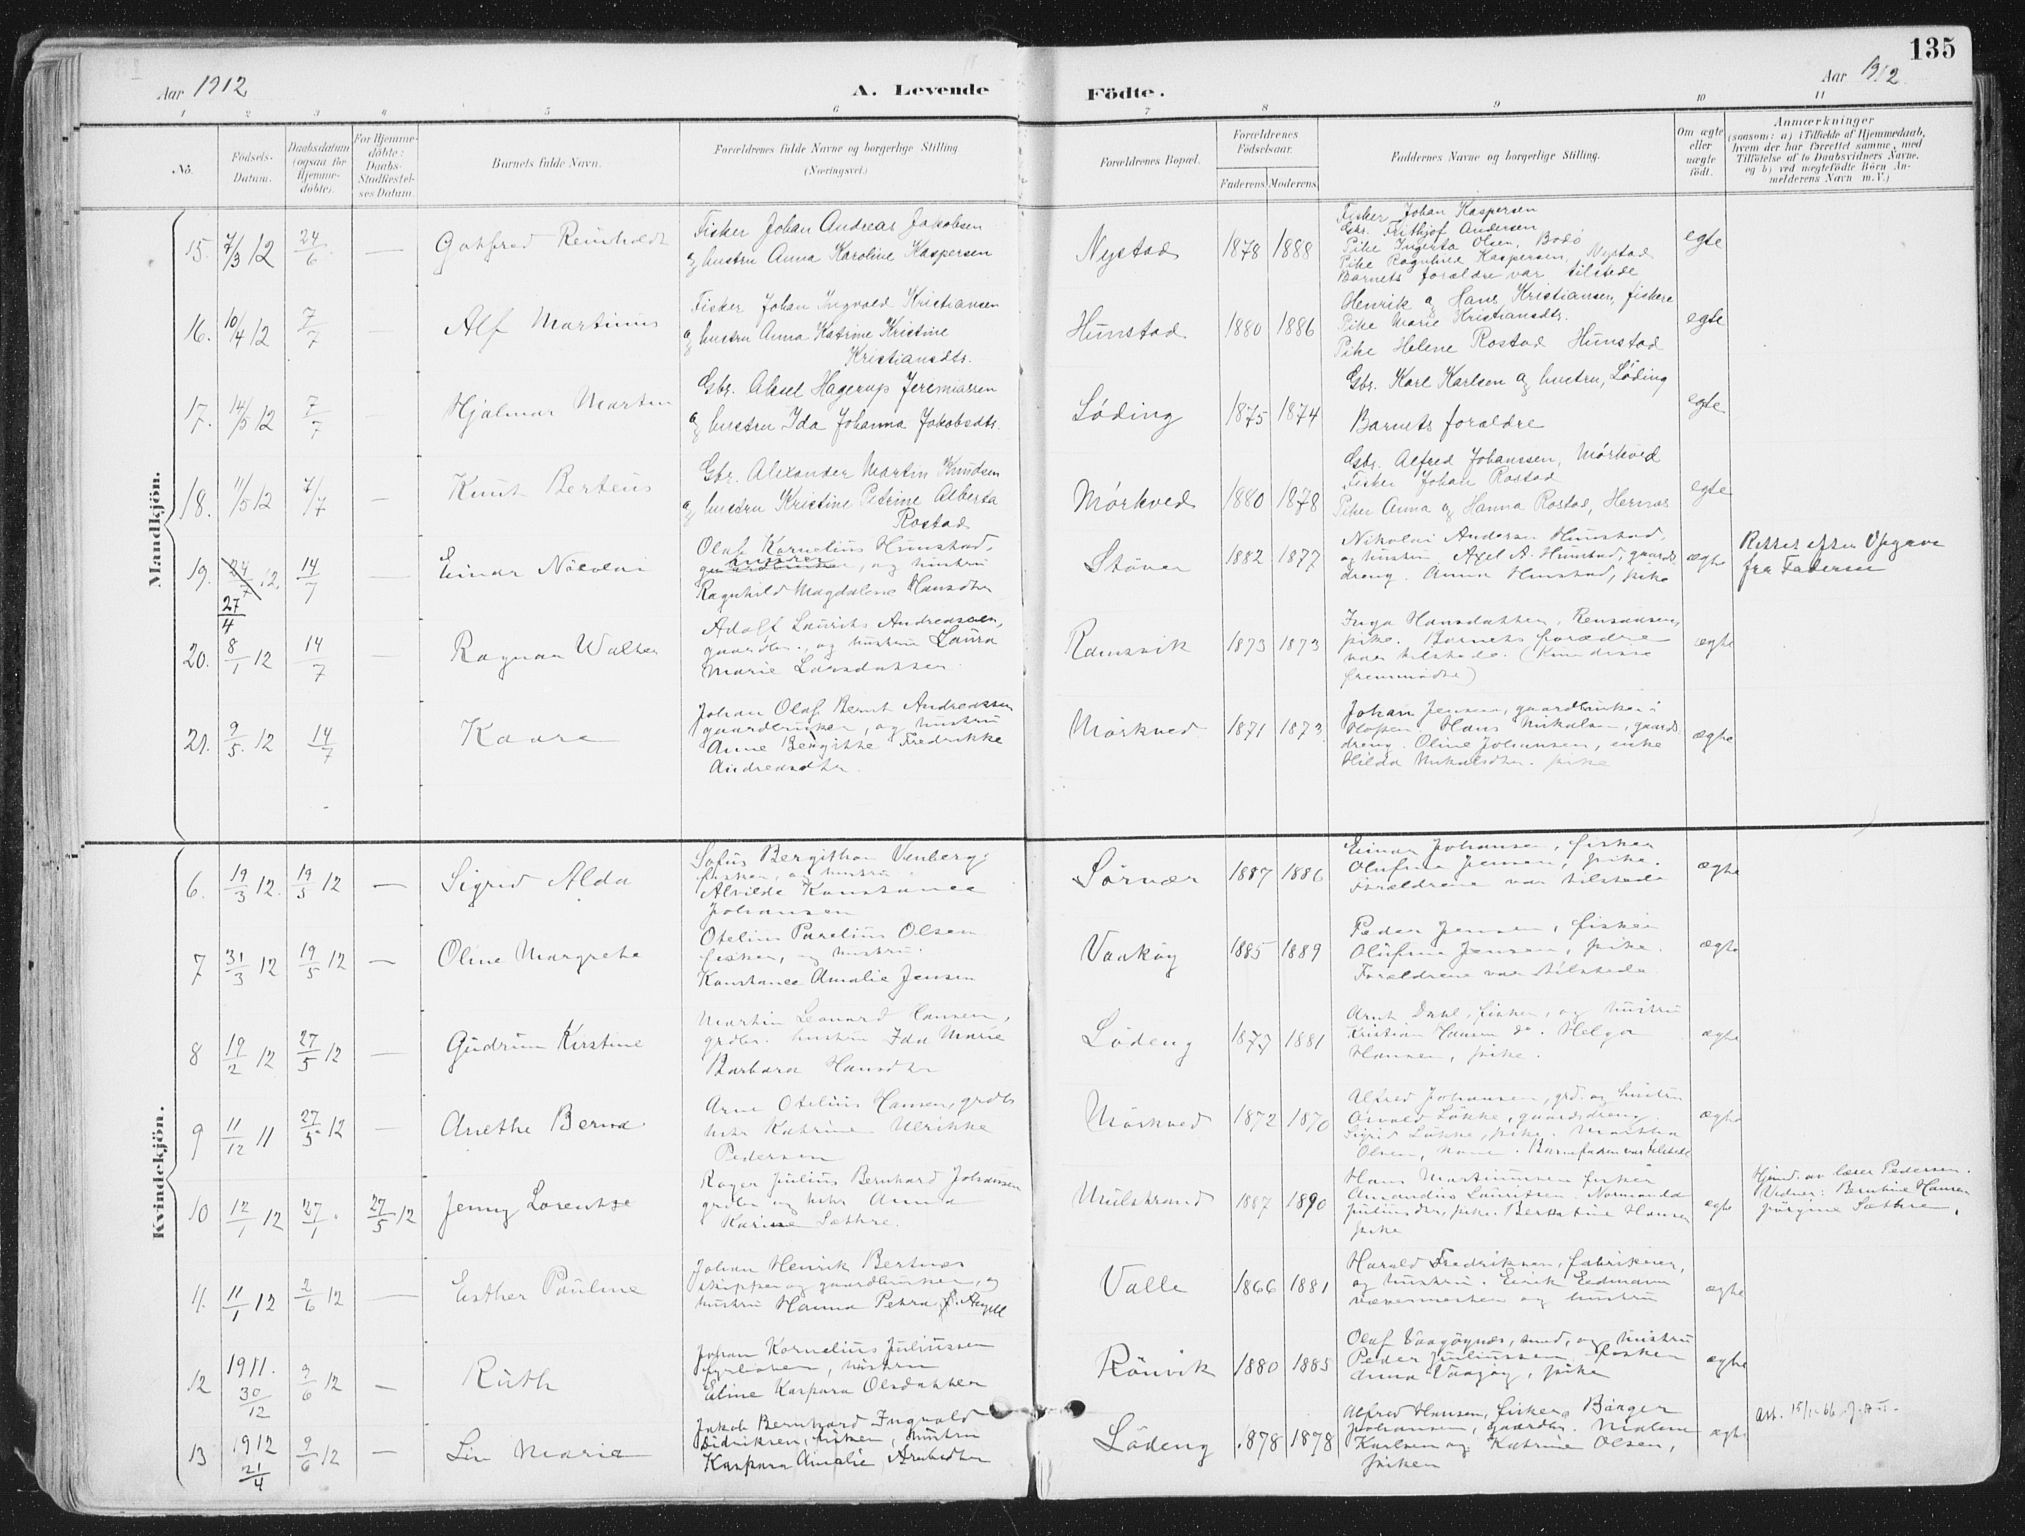 135
Aar 1912
A. Levende
Födte.
Aar 1912
1 2 3 4 5 6 7 8 9 10 11
No.
Födsels-Datum.
Daabsdatum (ogsaa for Hjemmedöbte).
For Hjemmedöbte: Daabs-Stadfæstelses Datum.
Barnets fulde Navn.
Forældrenes fulde Navne og borgerlige Stilling (Næringsvei.)
Forældrenes Bopæl.
Forældrenes Födselsaar.
Faderens. Moderens.
Faddernes Navne og borgerlige Stilling.
Om ægte eller uægte födt.
Anmærkninger
(saasom: a) i Tilfælde af Hjemmedaab, hvem der har forrettet samme, med Tilföielse af to Daabsvidners Navne, og b) ved uægtefödte Börn Anmelderens Navn m.V.)
Mandkjön.
15. 7/3 12 24/6 — Gotfred Reinholdt
Fisker Johan Andreas Jakobsen
og hustru Anna Karoline Kaspersen
Nystad 1878 1888
Fisker Johan Kaspersen
Gbr. Frithjof Andersen
Pike Ingerta Olsen, Bodø
Pike Ragnhild Kaspersen, Nystad
Barnets forældre var tilstede
egte
16. 10/4 12 7/7 — Alf Martinus
Fisker Johan Ingvald Kristiansen
og hustru Anna Katrine Kristine
Kristiansdtr.
Hunstad 1880 1886
Henrik og Hans Kristiansen, fiskere
Pike Marie Kristiansdtr.
Pike Helene Rostad Hunstad
egte
17. 14/5 12 7/7 — Hjalmar Martin
Gbr. Aksel Hagerup Jeremiassen
og hustru Ida Johanna Jakobsdtr.
Løding 1875 1874
Gbr. Karl Karlsen og hustru, Løding
Barnets forældre
egte
18. 11/5 12 7/7 — Knut Berteus
Gbr. Alexander Martin Knudsen
og hustru Kristine Petrine Alberta
Rostad
Mørkved 1880 1878
Gbr. Alfred Johanssen, Mørkved
Fisker Johan Rostad
Piker Anna og Hanna Rostad, Hernes
egte
19. 24/7 12. 27/4 14/7 — Einar
Olaf Kornelius Hunstad,
og hustru
Ragnhild Magdalene Hansdtr
Støver 1882 1877
Nikolai Andersen Hunstad,
og hustru Axel A. Hunstad, gaards
dreng. Anna Hunstad, pike
ægte
Rettet efter Opgave
fra Faderen
20. 8/1 12 14/7 — Ragnar Walter
Adolf Laurits Andreassen,
gaardbr., og hustru Laura
Marie Larsdatter.
Ramsvik 1873 1873
Inga Hansdatter,
pike. Barnets forældre
var tilstede.
ægte
21. 9/5. 12 14/7 Kaare
Johan Olaf Bernt Andreassen
gaardbruker, og hustru
Anne Bergitte Fredrikke
Andreasdtr.
Mörkved 1871 1873
Johan Jensen, gaardbruker i
Hopen Hans Nikolsen, gaards
dreng. Oline Johansen, enke
Hilda Nikolsdtr. pike
ægte
Kvindekjön.
6. 19/3 12. 19/5 12 — Sigrid Alda
Sofus Bergithon Venberg,
fisker, og hustru
Alvilde Konstance
Johansen
Sörvær 1887 1886
Einar Johansen, fisker
Olufine Jensen, pike.
Forældrene var tilstede
ægte
7 31/3 12 19/5 12 — Oline Margrethe
Otelius Parelius Olsen
fisker, og hustru.
Konstance Amalie Jensen
Vaaköy 1885 1889
Peder Jensen, fisker
Olufine Jensen, pike.
Forældrene var tilstede
ægte
8 19/2 12 27/5 12 — Gudrun Kirstine
Martin Leonard Hansen,
grdbr. hustru Ida Marie
Barbara Hansdtr
Lödeng 1877 1881
Arnt Dahl, fisker, og hustru
Kristian Hansen do. Helga
Hansen, pike.
ægte
9 11/12 11 27/5 12 — Anethe Berna
Arne Otelius Hansen, grdbr
hstr Katrine Ulrikke
Pedersen
Mörkved 1872 1870
Alfred Johansen, grd. og hustru
Osvald Løkke, gaardsdreng.
Sigrid Løkke, pike. Martha
Olsen, Barnefaderen var tilstede
ægte
10 12/1 12 27/1. 27/5 12 Jenny Lorentze
Roger Julius Bernhard Johansen
grdbr og hstr Anna
Karine Sæthre.
Mulstrand 1887 1890
Hans Martinussen fisker
Amandus Lauritsen. Normanda
Juliusdtr, pike. Hansen
pike
ægte
Hjmd. av lærer Pedersen.
Vidner: Berntine Hansen
Jörgine Sæthre.
11. 11/1 12 2/6 12 — Esther Pauline
Johan Henrik Bertnæs
skipper og gaardbruker, og
hustru Hanna Petra f. Angell
Valle 1866 1881
Harald Fredriksen, fabrikeier,
og hustru. Eirik Eedmann
vævermester og hustru
ægte
12 1911. 30/12 9/6 12 — Ruth
Johan Kornelius Juliussen
fyrböter, hustru
Eline Kaspara Olsdatter
Rönvik 1880 1885
Olaf Vaagönes, smed, og hustru
Peder Juliussen fisker
Anna Vaagöy, pike
ægte
13 1912 21/4 9/6 12 — Liv Maria
Jakob Bernhard Ingvald
Didriksen, fisker, hustru
Kaspara Amalie Arntsdtr
Lödeng 1878 1878
Alfred Hansen, fisker, Birger
Johansen, gaardbr.
Karlsen og Katrine Olsen,
piker
ægte